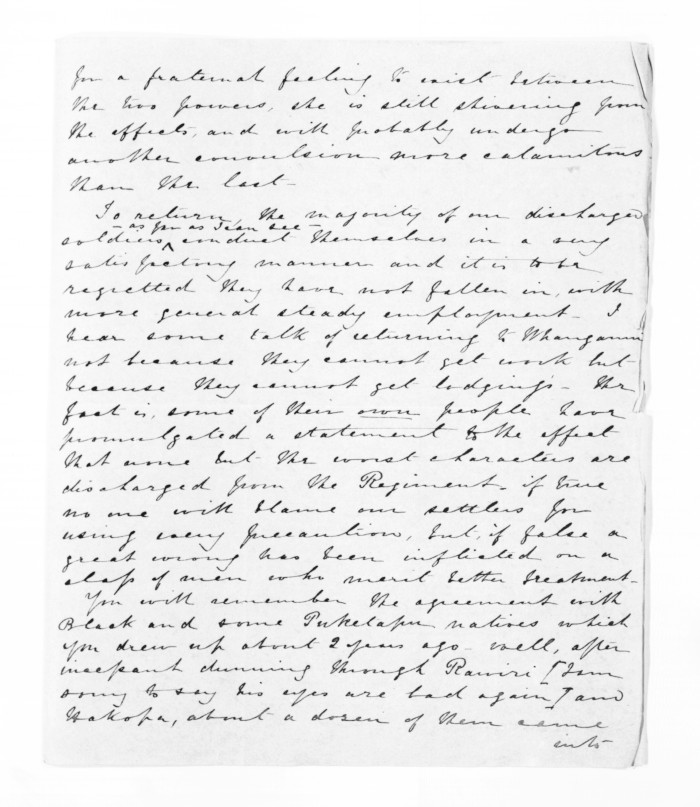 for a fraternal feeling to exist between
the two powers, she is still shivering from
the effects, and will probably undergo
another convulsion more calamitous
than the last -
To return, the majority of our discharged
- as far as I can see -
soldiers ^ conduct themselves in a very
satisfactory manner and it is to be
regretted they have not fallen in, with
more general steady employment - I
hear some talk of returning to Whanganui
not because they cannot get work but
because they cannot get lodgings - the
fact is, some of their own people have
promulgated a statement to the effect
that none but the worst characters are
discharged from the Regiment - if true
no one will blame our settlers for
using every precaution, but, if false a
great wrong has been inflicted on a
class of men who merit better treatment -
You will remember the agreement with
Black and some Puketapu natives which
you drew up about 2 years ago - well, after
incessant dunning through Rawiri [I am
sorry to say his eyes are bad again] and
Hakopa, about a dozen of them came
into